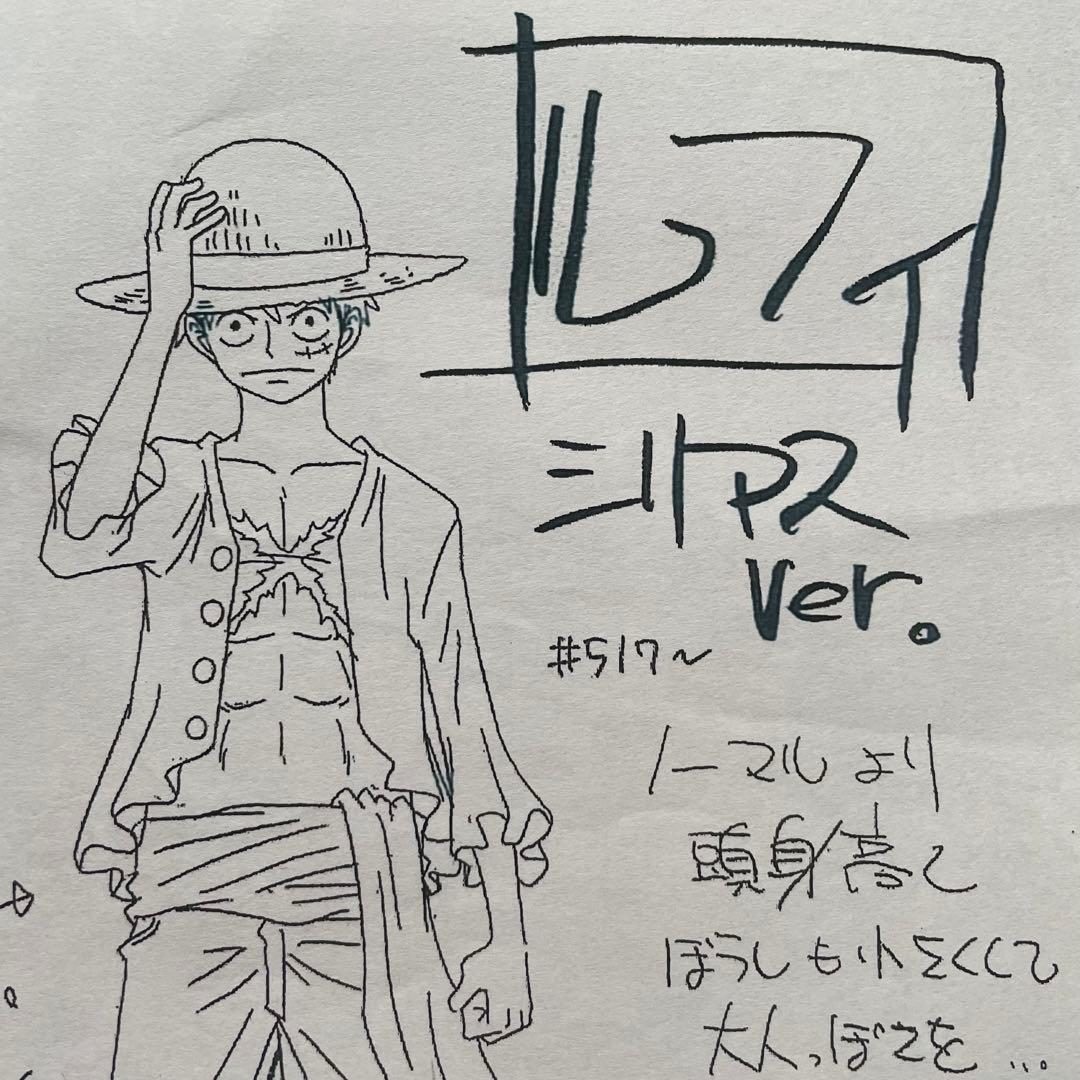 ルフィ
シリアス
ver.
#517~
ノーマルより
頭身高く
ぼうしも小さくして
大人っぽさを...